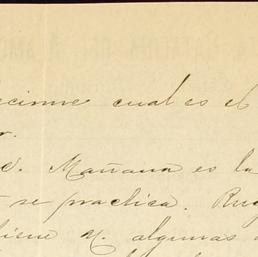 decirme cual es el
r.
d. Mañana es la
se practica. Rug
tiene V. algunas